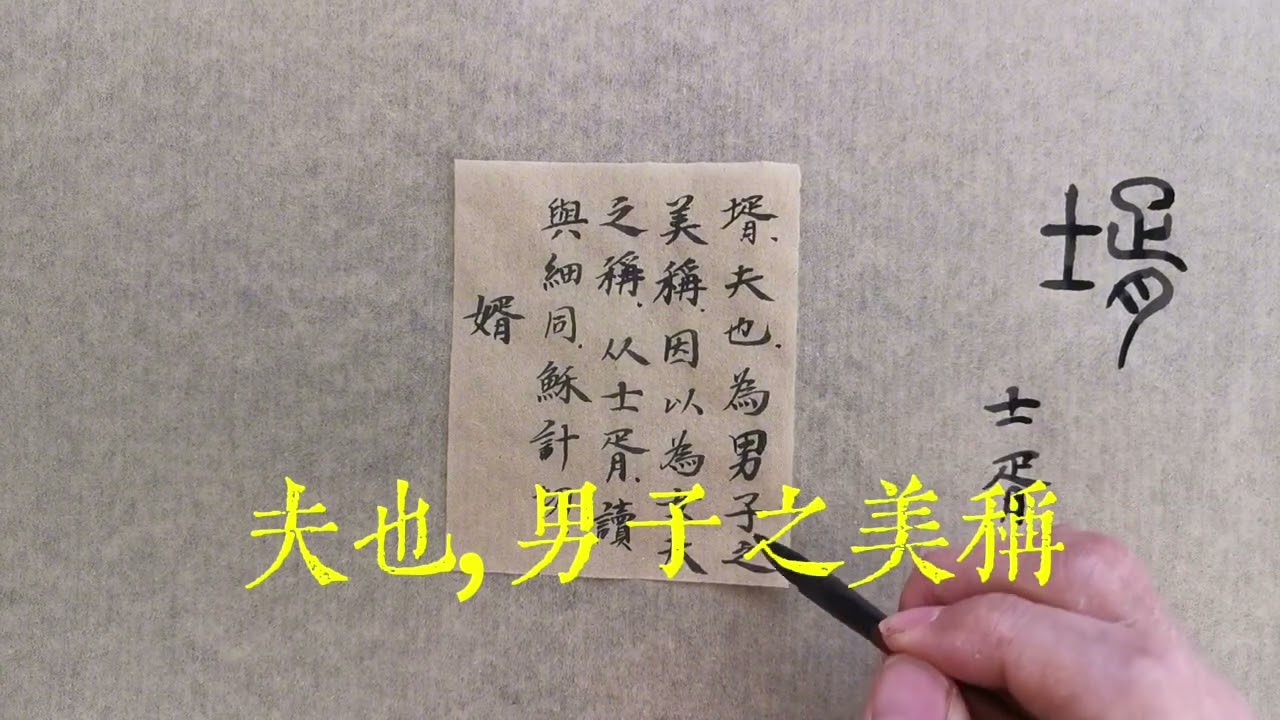 壻
士胥
壻、夫也、為男子之
美稱、因以為丈夫
之稱、从士胥、讀
與細同、穌計切
婿
夫也,男子之美稱